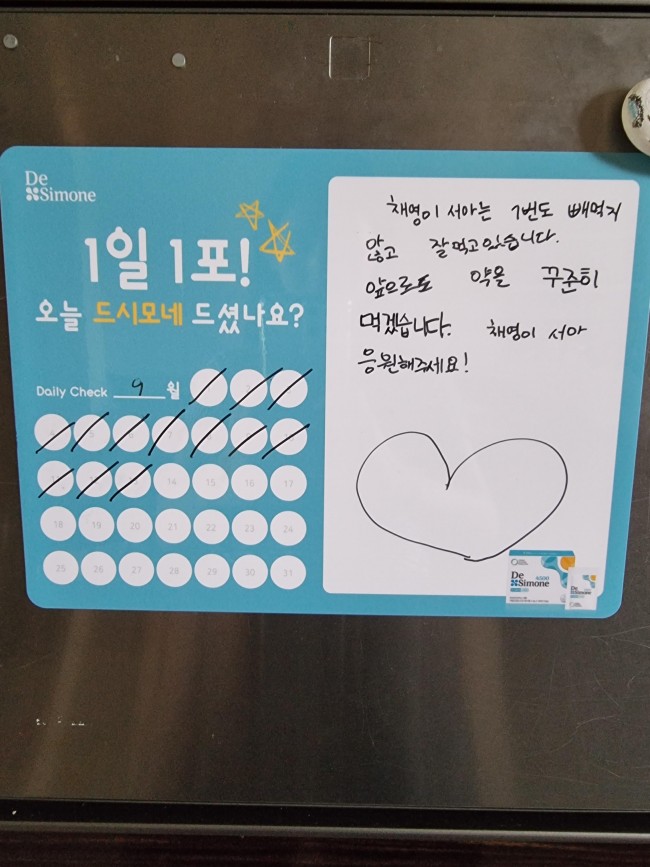 De
Simone
1일 1포!
오늘 드시모네 드셨나요?
Daily Check 9 월
14 15 16 17
18 19 20 21 22 23 24
25 26 27 28 29 30 31
채영이 서아는 1번도 빼먹지
않고 잘먹고있습니다.
앞으로도 약을 꾸준히
먹겠습니다. 채영이 서아
응원해주세요!
De
Simone
De
Simone